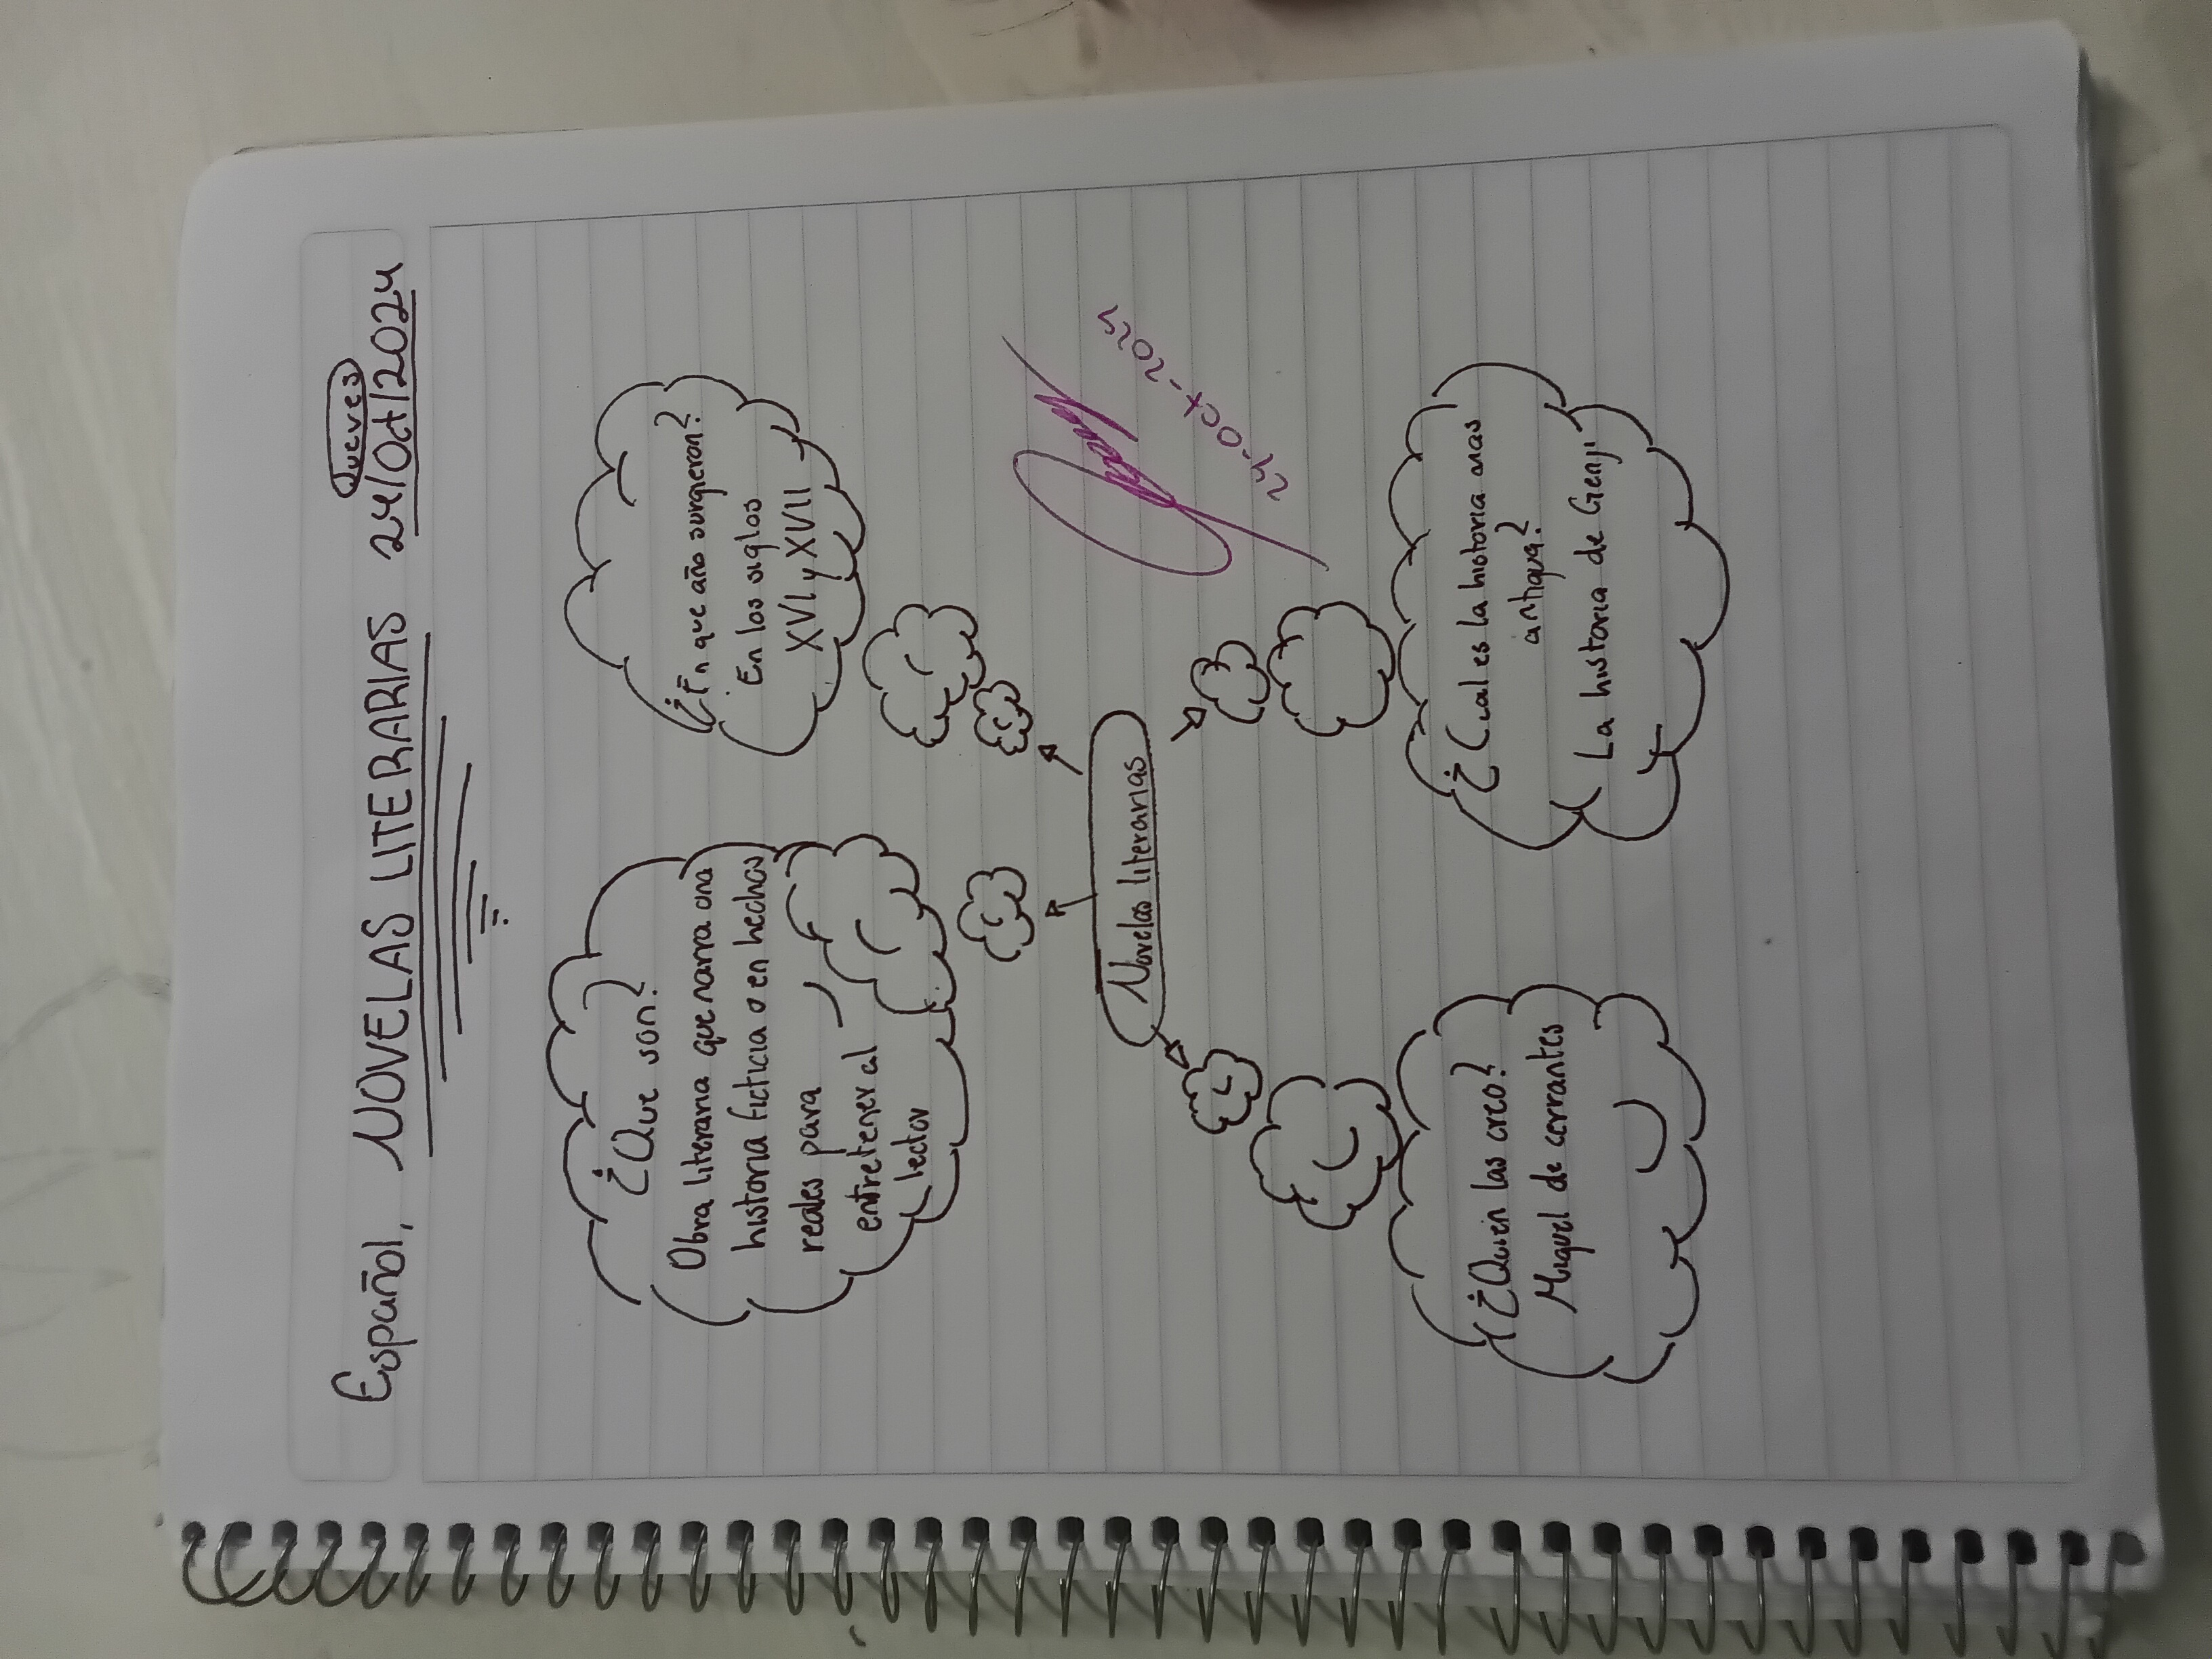 Jueves
Español, NOVELAS LITERARIAS 24/Oct/2024
¿Que son?
Obra literaria que narra una
historia ficticia o en hechos
reales para
entretener al
lector
¿En que año surgieron?
En los siglos
XVI y XVII
Novelas literarias
24-Oct-2024
¿Quien las creo?
Miguel de cervantes
¿Cual es la historia mas
antigua?
La historia de Genji